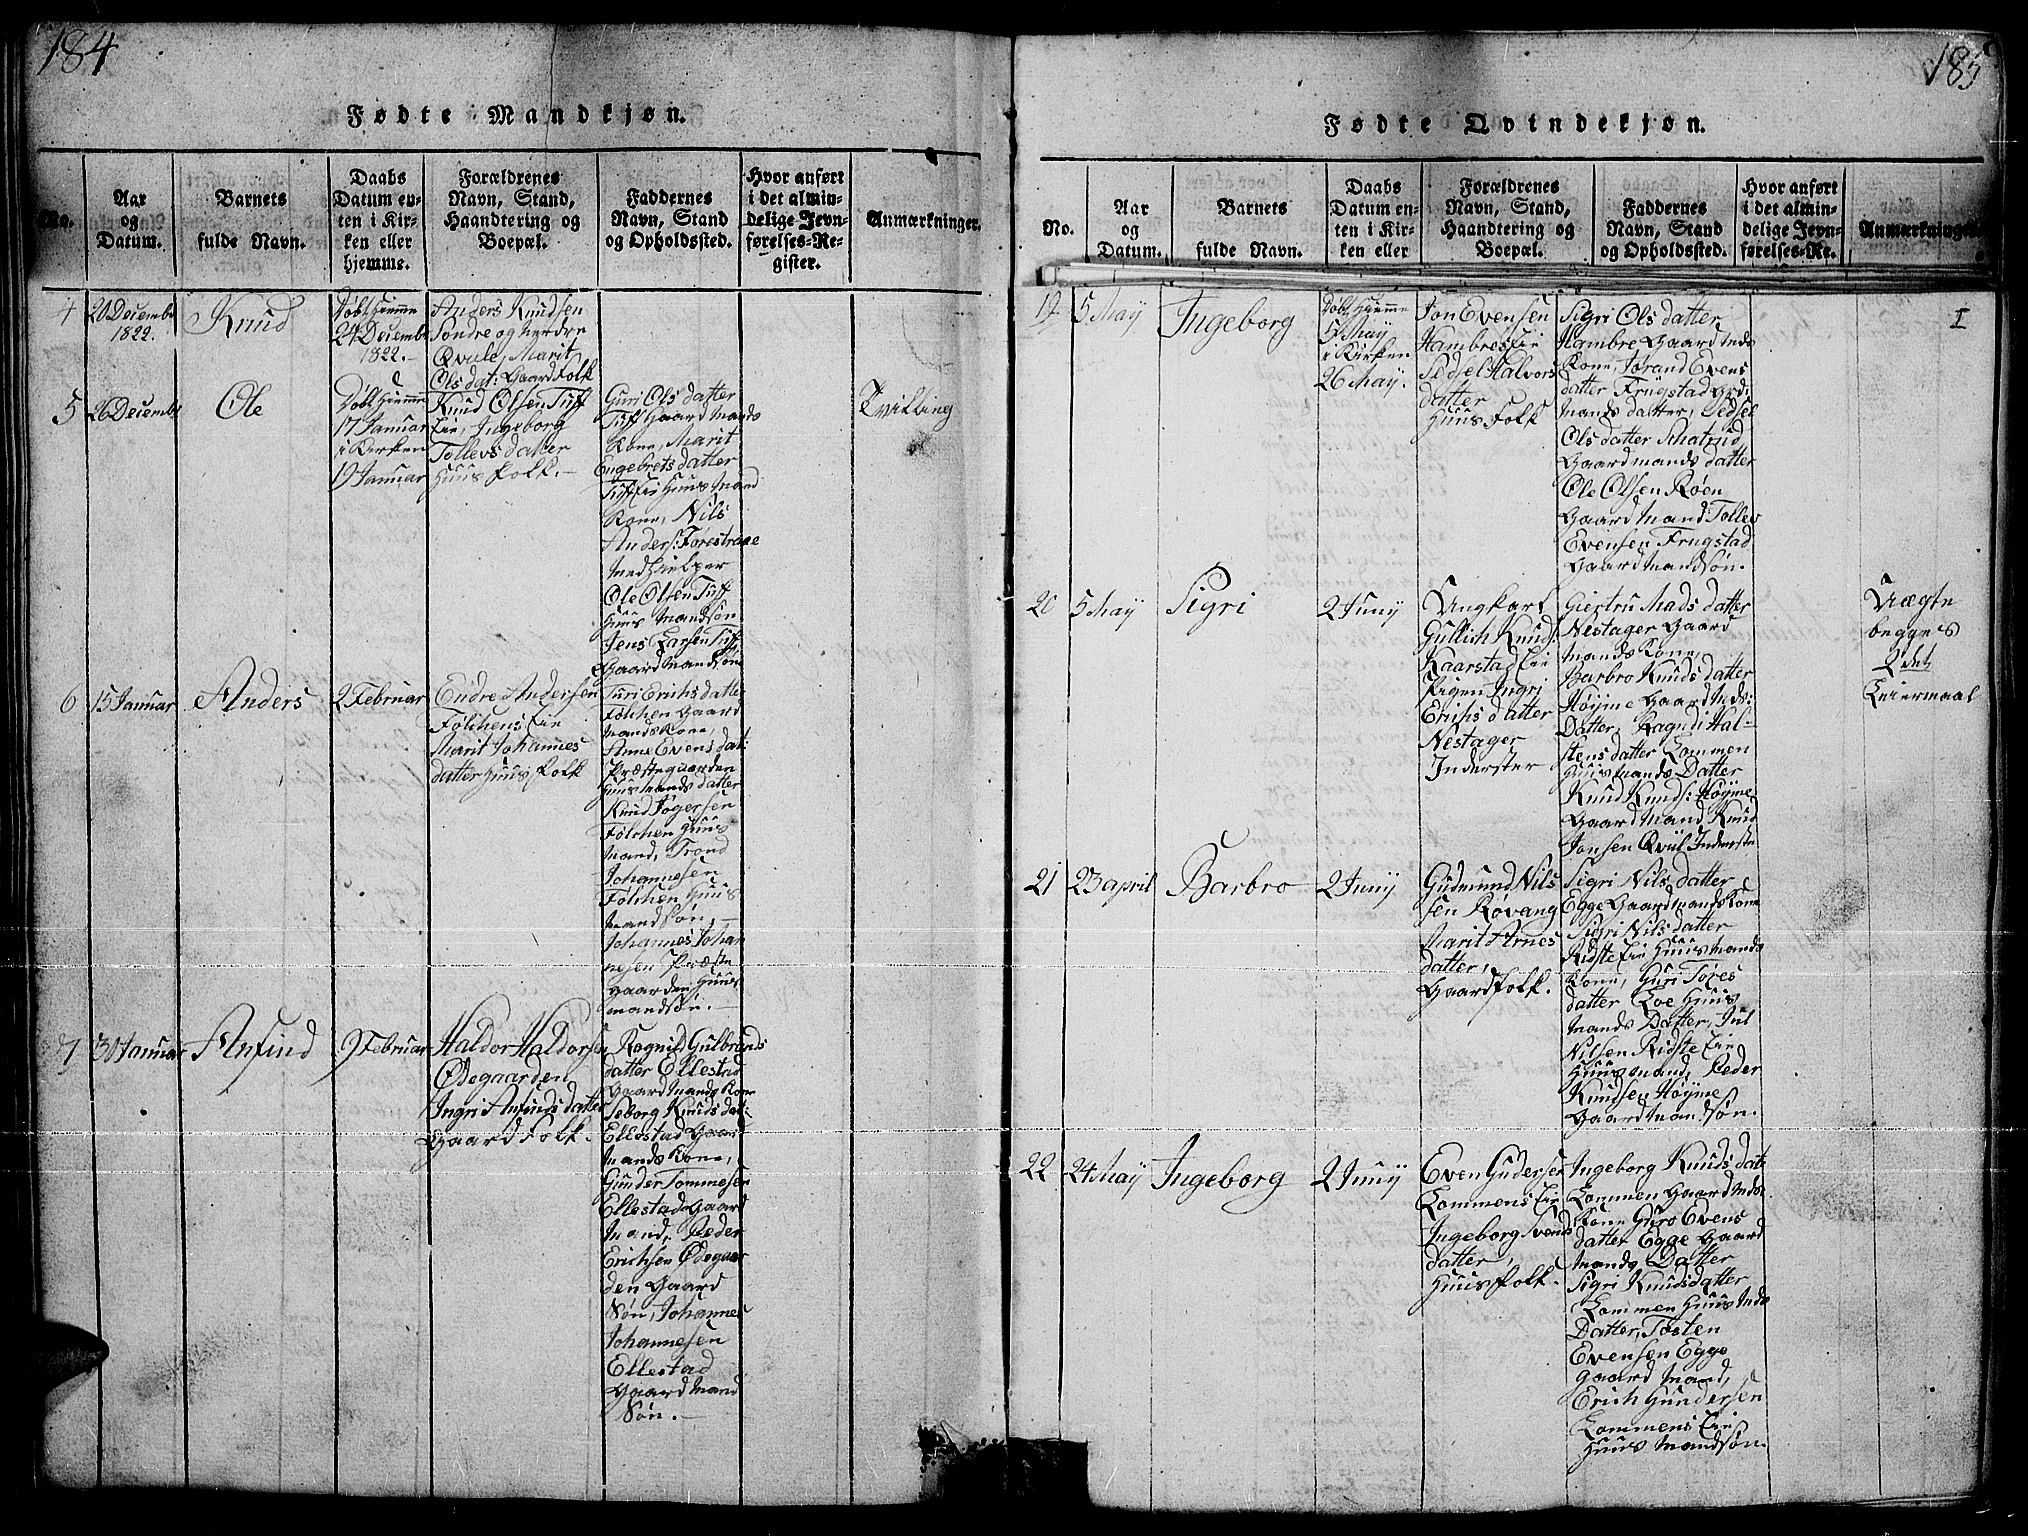 184
Fødte Mandkjøn.
No.
Aar
og
Datum.
Barnets
fulde Navn.
Daabs
Datum en-
ten i Kir-
ken eller
hjemme.
Forældrenes
Navn, Stand,
Haandtering og
Boepæl.
Faddernes
Navn, Stand
og Opholdssted.
Hvor anført
i det almin-
delige Jevn-
førelses-Re-
gister.
Anmærkninger.
4
20 Decembr
1822.
Knud
Døbt Hiemme
24 Decembr
1822.-
Anders Knudsen
Søndre og nordre
Qvale, Marit
Ols dat: Gaard Folk
5
26 Decembr
Ole
Døbt Hiemme
17 Januar
i Kirken
19 Januar
Knud Olsen Tuff
Eie, Ingeborg
Tollevs datter
Huus Folk.-
Guri Ols datter
Tuff Gaard Mands
Kone, Marit
Engebrets datter
Tuff Eie Huus Mand
Kone, Nils
Anders: Førestrane
Medhielper
Ole Olsen Tuff
Huus Mandsøn
Jens Larsen Tuff
Gaard Mandsøn
Tvilling
6
15 Januar
Anders
2 Februar
Endre Andersen
Fölchens Eie
Marit Johannes
datter Huus Folk
Turi Erichs datter
Fölchen Gaard
Mands Kone,
Anne Evens dat:
Præstegaarden
Huus Mands datter
Knud Fögersen
Fölchen Huus
Mand, Trond
Johannesen
Fölchen Huus
Mandsøn,-
Johannes Johan
nesen Præste
Gaarden Huus
mandsøn.-
7
30 Januar
Anfind
9 Februar
Haldor Haldorsen
Ødegaarden
Ingri Anfinds datter
Gaard Folk.
Ragnild Gulbrands
datter Ellestad
Gaard Mands Kone
Seborg Knuds dat:
Ellestad Gaar
Mands Kone,
Gunder Tommesen
Ellestad Gaard
Mand, Peder
Erichsen Ødegaar
den Gaard
Søn, Johannes
Johannesen
Ellestad
Gaard Mand
Søn.-
185
Fødte Qvindekjøn.
No.
Aar
og
Datum.
Barnets
fulde Navn.
Daabs
Datum en-
ten i Kir-
ken eller
Forældrenes
Navn, Stand,
Haandtering og
Boepæl.
Faddernes
Navn, Stand
og Opholdssted.
Hvor anført
i det almin-
delige Jevn-
førelses-Re-
Anmærkninger.
19
5 May
Ingeborg
Døbt Hiemme
5 May
i Kirken
26 May.
Jon Evensen
Hambres Eie
Sedsel Halvors
datter
Huus Folk
Sigri Ols datter
Hambre Gaard Mds
Kone, Jørand Evens
datter Frugstad Grd:
Mands datter, Sedsel
Ols datter Schatrud
Gaard mands datter
Ole Olsen Røen
Gaard Mand Tollev
Evensen Frugstad
Gaard Mandsøn.
I
20
5 May
Sigri
2 Juny
Ungkarl
Gullich Knud:
Kaarstad Eie
Pigen Ingri
Erichs datter
Nestager
Inderster
Giertru Mads datter
Nestager Gaard
Mands Kone,
Barbro Knuds datter
Høyme Gaard Mds:
Datter, Ragnd: Hal-
stens datter Lommen
Huus Mands Datter
Knud Knuds: Høyme
Gaard Mand Knud
Jonsen Qvul Inderste
Uægte
begges
2det
Leiermaal
21
23 april
Barbro
2 Juny
Gudmund Nils
sen Røvang
Marit Arnes
datter,
Gaard Folk.
Sigri Nils datter
Egge Gaard Mands Kone
Sigri Nils datter
Ridste Eie Huus Mands
Kone, Guri Tores
datter Loe Huus
Mands Datter, Jul
Nilsen Ridste Eie
Huus Mand, Peder
Knudsen Høyme
Gaard Mandsøn.
22
24 May
Ingeborg
2 Juny
Even Gudersen
Lommens Eie
Ingeborg Svends
datter,
Huus Folk.
Ingeborg Knuds dat:
Lommen Gaard Mds
Kone Guro Evens
datter Egge Gaard
Mands Datter
Sigri Knuds datter
Lommen Huus Mds
Datter, Tosten
Evensen Egge
Gaard Mand,
Erich Gundersen
Lommens Eie
Huus Mandsøn.